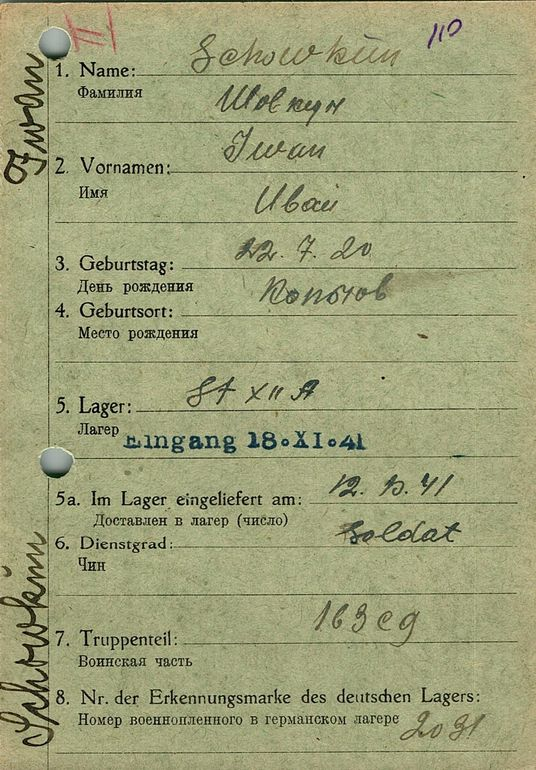 II
110
Iwan
Schowkün
1. Name: Schowkün
Фамилия
Шовкун
2. Vornamen: Iwan
Имя
Иван
3. Geburtstag: 22. 7. 20
День рождения
4. Geburtsort:
Место рождения
5. Lager: St XII A
Лагерь
Eingang 18.XI.41
5a. Im Lager eingeliefert am: 12. 41
Доставлен в лагерь (число)
6. Dienstgrad: Soldat
Чин
7. Truppenteil: 163 сд
Воинская часть
8. Nr. der Erkennungsmarke des deutschen Lagers:
Номер военнопленного в германском лагере 2031